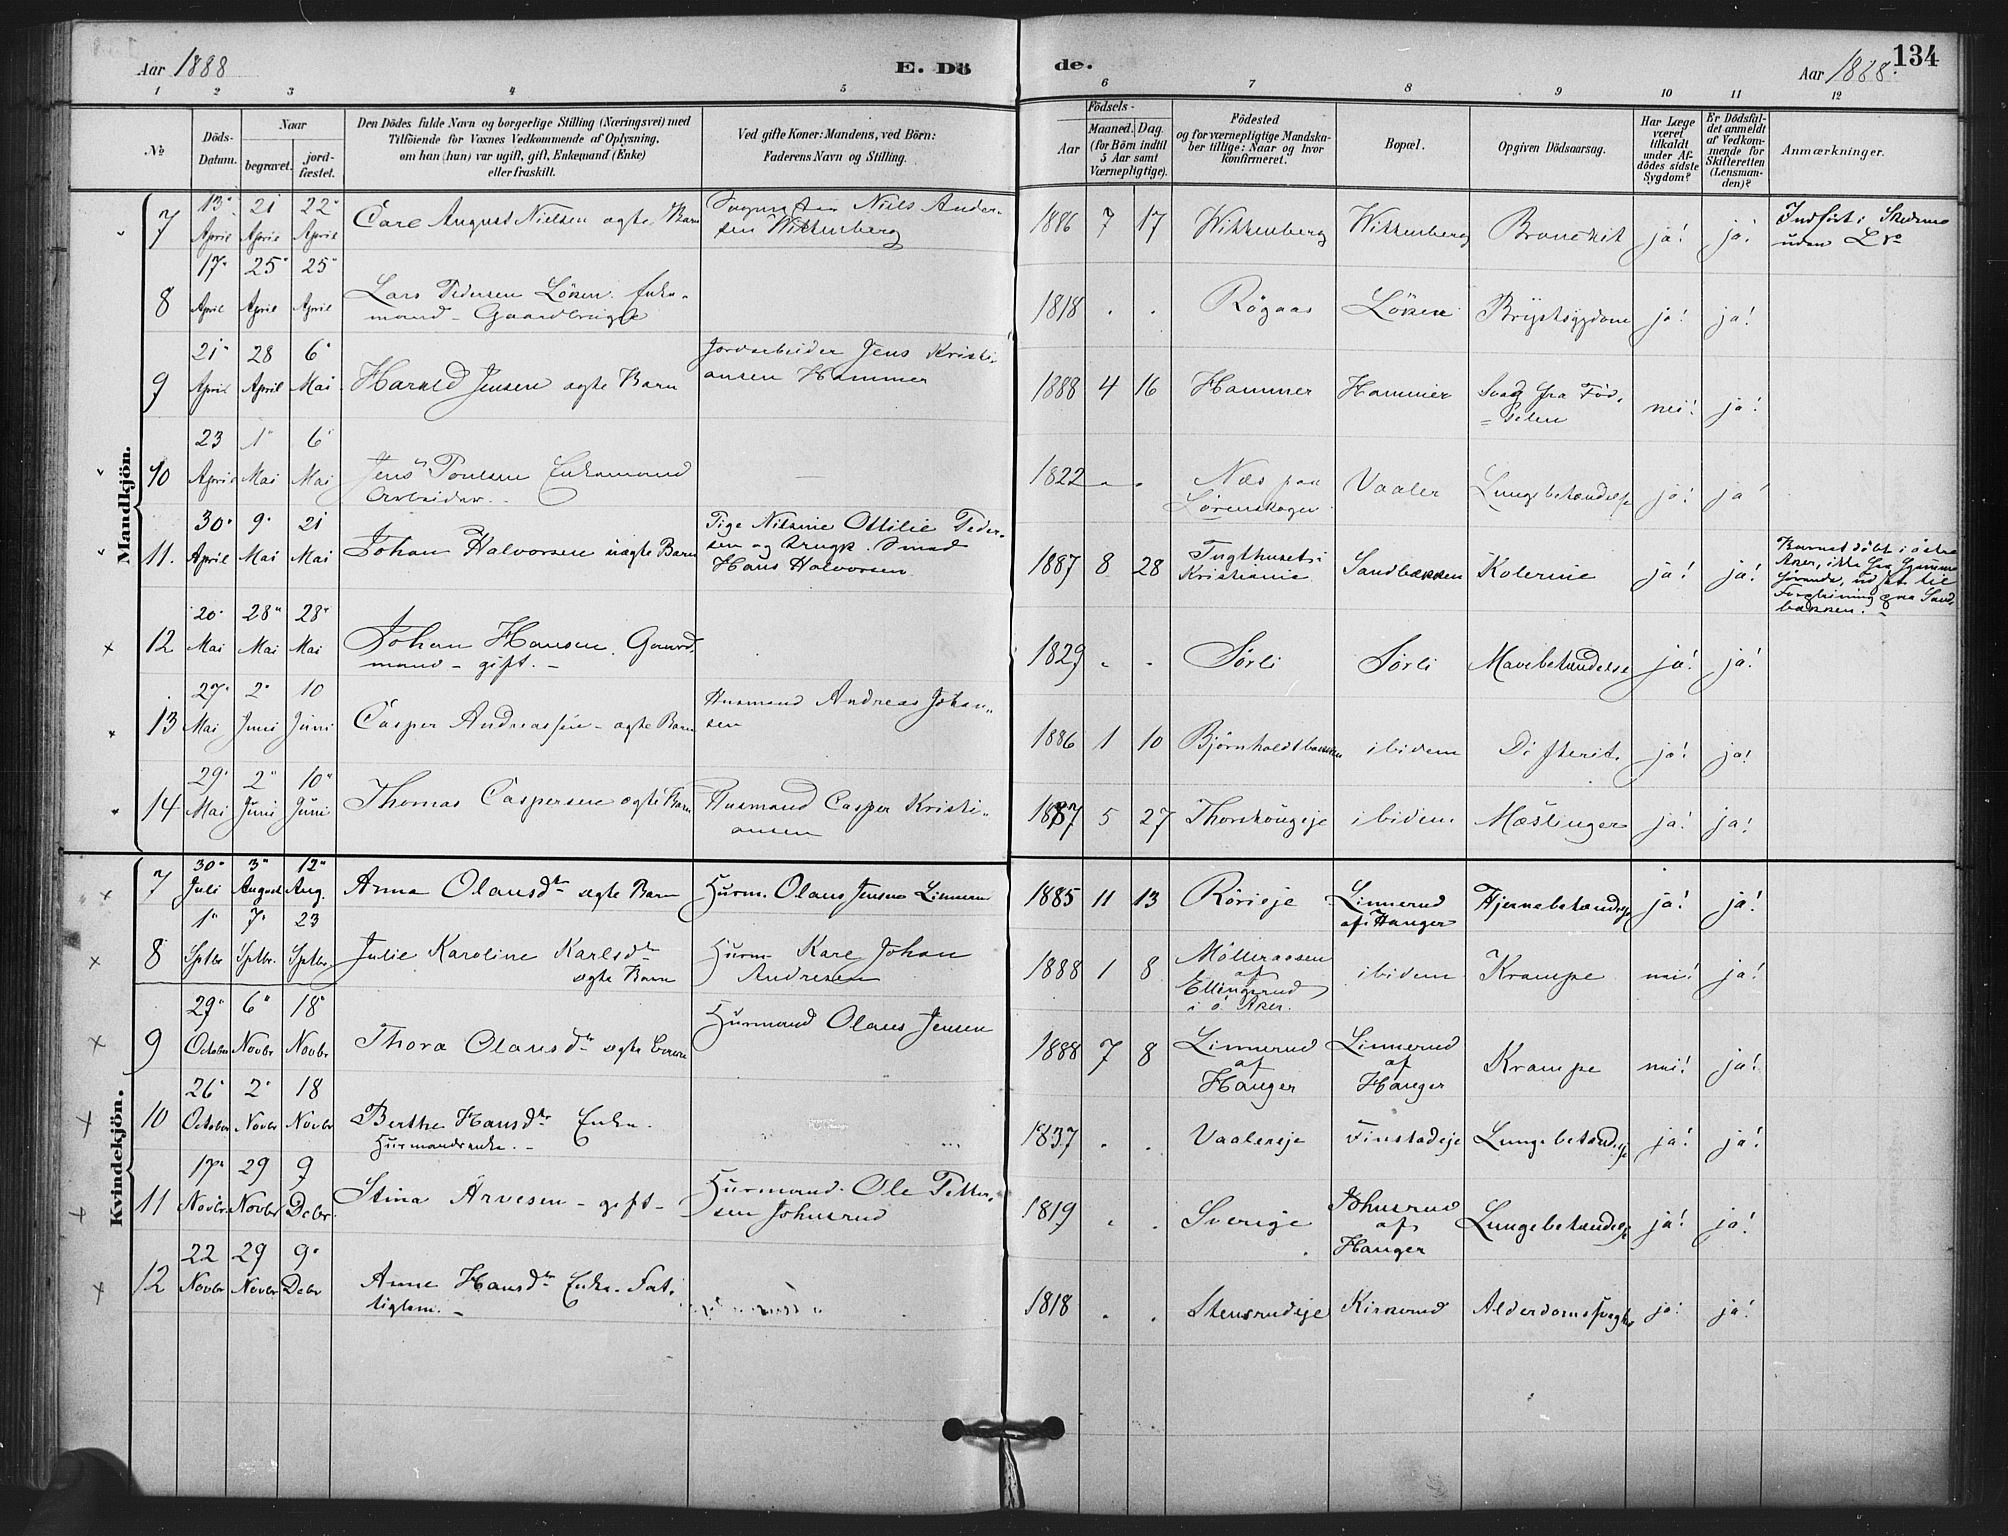 Aar 1888
E. Dö
de.
Aar 1888.
134
1 2 3 4 5 6 7 8 9 10 11 12
No
Döds-
Datum.
Naar
begravet.
jord-
fæstet.
Den Dödes fulde Navn og borgerlige Stilling (Næringsvei) med
Tilföiende for Voxnes Vedkommende af Oplysning,
om han (hun) var ugift, gift, Enkemand (Enke)
eller fraskilt.
Ved gifte Koner: Mandens, ved Börn:
Faderens Navn og Stilling.
Födsels-
Aar
Maaned.
Dag.
(for Börn indtil
5 Aar samt
Værnepligtige).
Födested
og for værnepligtige Mandska-
ber tillige: Naar og hvor
konfirmeret.
Bopæl.
Opgiven Dödsaarsag.
Har Læge
været
tilkaldt
under Af-
dödes sidste
Sygdom?
Er Dödsfal-
det anmeldt
af Vedkom-
mende for
Skifteretten
(Lensman-
den)?
Anmærkninger.
Mandkjön.
7 13 April 21 April 22 April Carl August Nielsen ægte Barn Niels Ander-
sen Wittenberg 1886 7 17 Wittenberg Wittenberg Bronchit ja! ja! Indført i Skedsmo
uden L No
8 17 April 25 April 25 April Lars Pedersen Löken. Enke-
mand - Gaardbruger 1818 Rögaas Löken Brystsygdom ja! ja!
9 21 April 28 April 6 Mai Harald Jensen ægte Barn Jordarbeider Jens Kristi-
ansen Hammer 1888 4 16 Hammer Hammer Svag fra Fød-
selen nei! ja!
10 23 April 1 Mai 6 Mai Jens Poulsen Enkemand
Arbeider. 1822 Næs paa
Lørenskogen Vaaler Lungebetændelse ja! ja!
11. 30 April 9 Mai 21 Mai Johan Halvorsen uægte Barn Pige Nilsine Ottilie Peder-
sen og Smed
Hans Halvorsen 1887 8 28 Tugthuset i
Kristiania Sandbakken Kolerine ja! ja! Barnet døbt i östre
Aker, ikke fra
til
paa Sand-
bakken.
12 20 Mai 28 Mai 28 Mai Johan Hansen. Gaard-
mand - gift. 1829 Sørli Sørli Mavebetændelse ja! ja!
13 27 Mai 2 Juni 10 Juni Casper Andreassen - ægte Barn Husmand Andreas Johan-
sen 1886 1 10 Bjørnholdtbakken ibidem Difterit. ja! ja!
14 29 Mai 2 Juni 10 Juni Thomas Caspersen ægte Barn Husmand Casper Kristi-
ansen 1887 5 27 ibidem Mæslinger ja! ja!
Kvindekjön.
7 30 Juli 3 August 12 Aug. Anna Olausdtr ægte Barn Husm. Olaus Jensen Linnerud 1885 11 13 Rörieje Linnerud
af Hanger Hjernebetændelse ja! ja!
8 1 Sptbr 7 Sptbr. 23 Sptbr. Julie Karoline Karlsdtr
ægte Barn Husm. Karl Johan
Andresen 1888 1 8 Mölleraasen
af
Ellingsrud
i ö. Aker. ibidem Krampe nei! ja!
9 29 October 6 Novbr 18 Novbr Thora Olausdtr ægte Barn Husmand Olaus Jensen 1888 7 8 Linnerud
af
Hanger Linnerud
af
Hanger Krampe nei! ja!
10 26 October 2 Novbr 18 Novbr Berthe Hansdtr Enke.
Husmandsenke. 1837 Vaalereje Finstadeje Lungebetændelse ja! ja!
11 17 Novbr. 29 Novbr 9 Debr. Stina Arvesen - gift - Husmand Ole Petter-
sen Johnsrud 1819 Sverige Johnsrud
af
Hanger Lungebetændelse ja! ja!
12 22 Novbr 29 Novbr 9 Debr Anne Hansdtr Enke. Fat-
tiglem. 1818 Stensrudeje Alderdomssvaghed ja! ja!